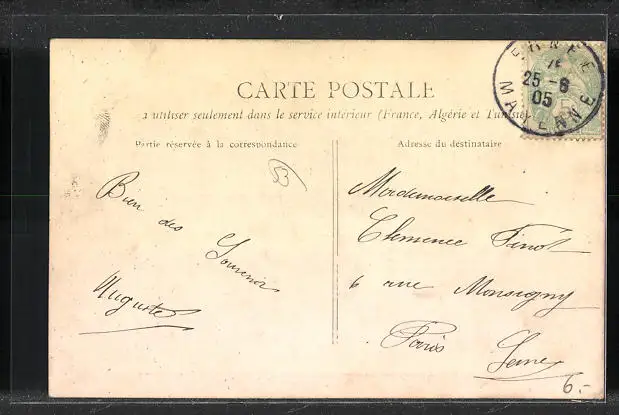 CARTE POSTALE
à utiliser seulement dans le service intérieur (France, Algérie et Tunisie)
Partie réservée à la correspondance
Adresse du destinataire
25 -6
05
MAYENNE
5
53
Bien des Souvenir
Auguste
Mademoiselle
Clemence Pinot
6 rue Monsigny
Paris
Seine
6.-